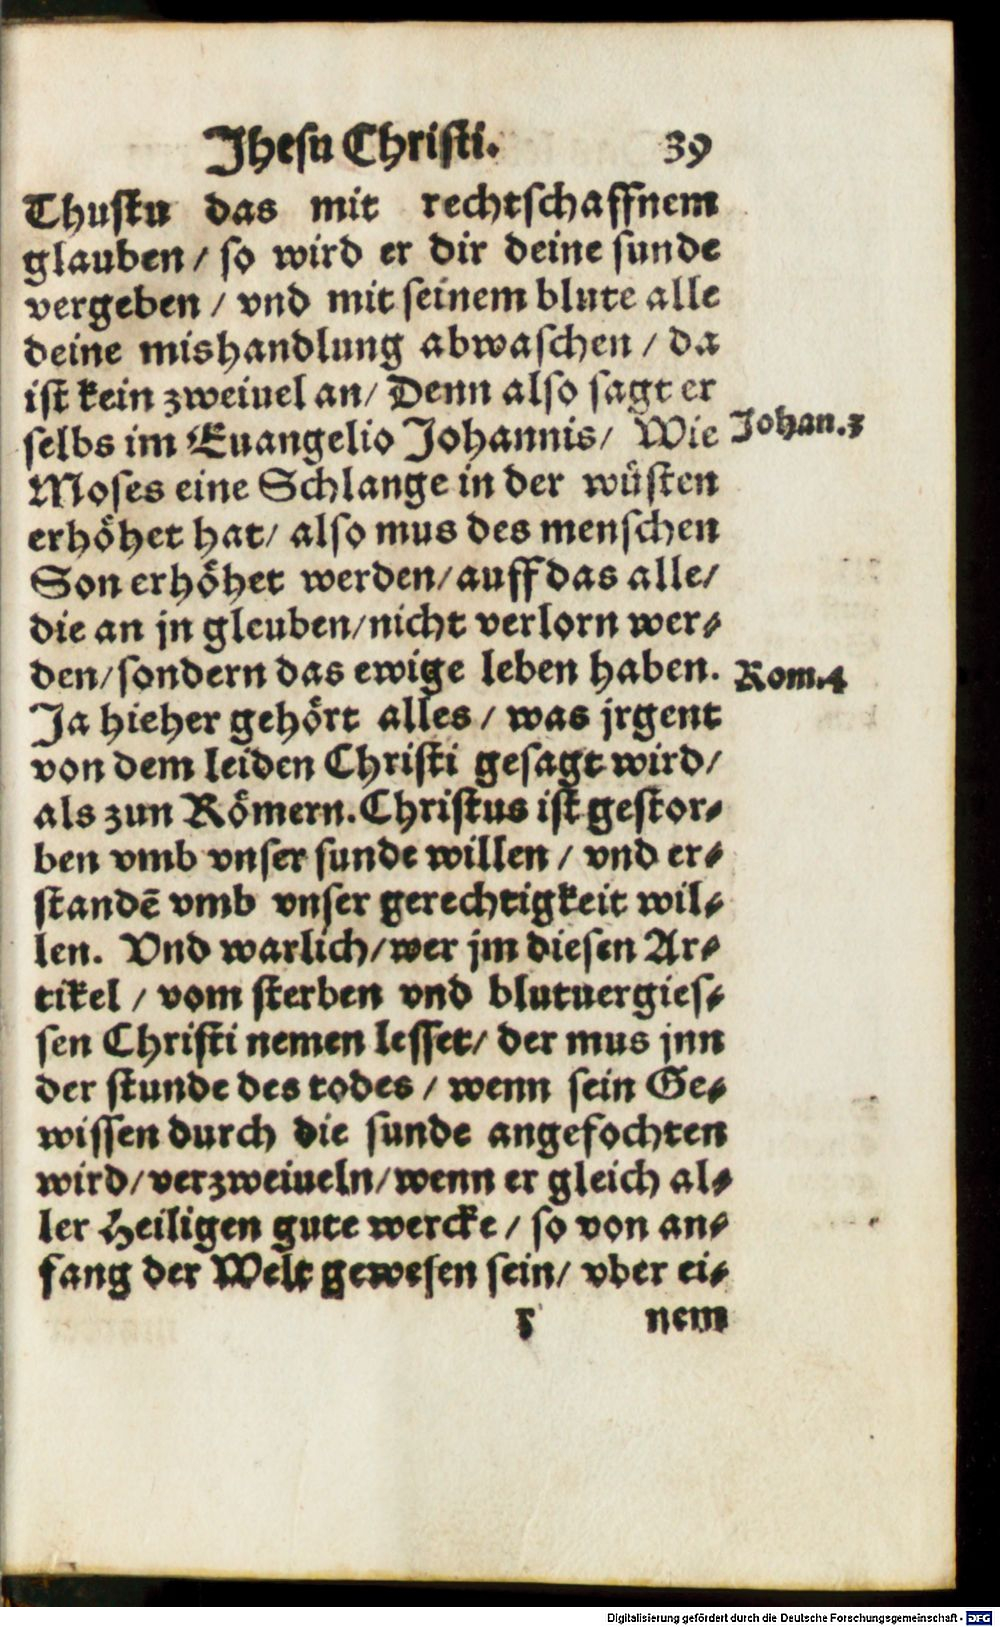 Jhesu Christi. 39
Thustu das mit rechtschaffnem
glauben / so wird er dir deine sunde
vergeben / vnd mit seinem blute alle
deine mishandlung abwaschen / da
ist kein zweiuel an / Denn also sagt er
selbs im Euangelio Johannis / Wie
Johan.3
Moses eine Schlange in der wüsten
erhöhet hat / also mus des menschen
Son erhöhet werden / auff das alle /
die an jn gleuben / nicht verlorn wer⸗
den / sondern das ewige leben haben.
Rom.4
Ja hieher gehört alles / was jrgent
von dem leiden Christi gesagt wird /
als zun Römern. Christus ist gestor⸗
ben vmb vnser sunde willen / vnd er⸗
standē vmb vnser gerechtigkeit wil⸗
len. Vnd warlich / wer jm diesen Ar⸗
tikel / vom sterben vnd blutuergies⸗
sen Christi nemen lesset / der mus jnn
der stunde des todes / wenn sein Ge⸗
wissen durch die sunde angefochten
wird / verzweiueln / wenn er gleich al⸗
ler Heiligen gute wercke / so von an⸗
fang der Welt gewesen sein / vber ei⸗
nem
Digitalisierung gefördert durch die Deutsche Forschungsgemeinschaft - DFG